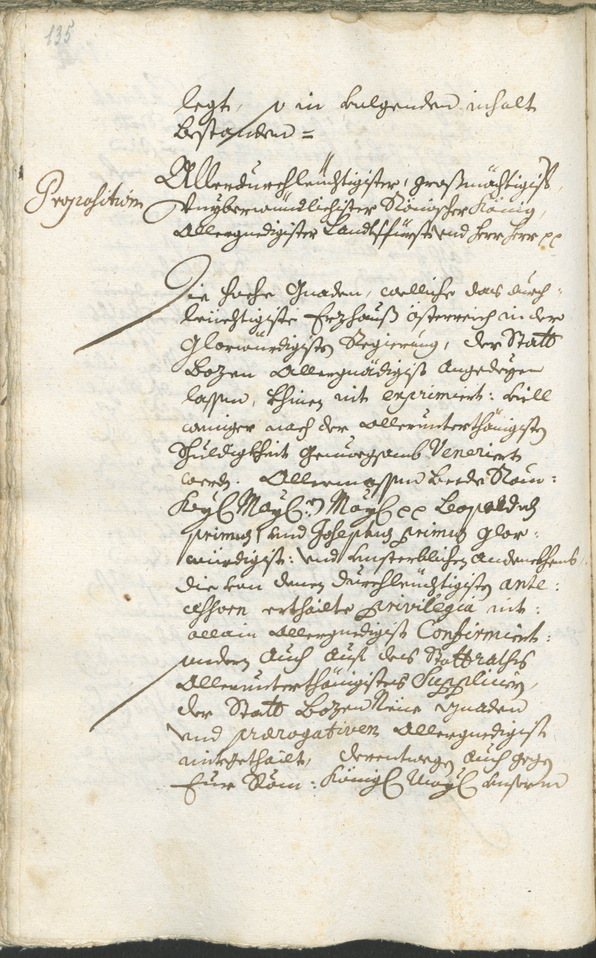 135
legt, v in volgenden inhalt
bestanden =
Proposition
Allerdurchleüchtigister, großmächtigist,
Vnyberwündlichister Römischer König,
Allergnedigister Landtsfürst vnd Herr Herr pp
Die hoche Gnaden, welliche das durch=
leüchtigiste Erzhauß Österreich in der
Glorwürdigisten Regierung, der Statt
Bozen Allergnädigist angedeyen
lassen, khinen nit exprimiert: vill
weniger nach der allerunterthönigisten
Schuldigkheit genuegsamb Veneriert
werden. Allermassen beede Röm:
Kayl. May. May. pp Leopoldus
primus, vnd Josephus primus glor=
würdigist: vnd vnsterblichen Andenckhens,
die von denen durchleüchtigisten ante=
cessorn erthailte privilegia nit
allain allergnedigist Confirmiert:
sondern auch auf des Stattraths
allerunterthönigistes Supplicirn,
der Statt Bozen neüe gnaden
vnd prærogativen allergnedigist
mitgethailt, derentwegen auch gegen
Eur Röm: Königl. May. vnserm